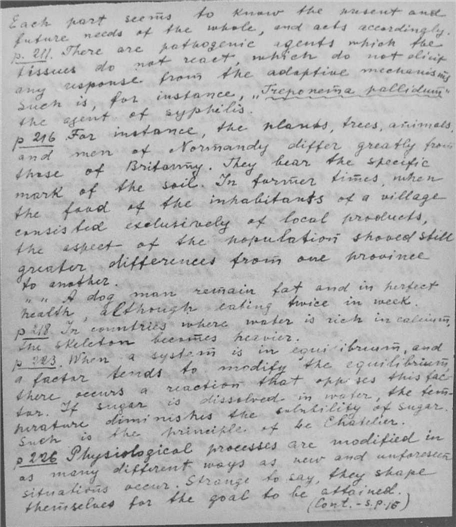 Each part seems to know the present and
future needs of the whole, and acts accordingly.
p. 211. There are pathogenic agents which the
tissues do not react, which do not elicit
any response from the adaptive mechanisms
Such is, for instance, "Treponema pallidum"
the agent of syphilis.
p 216 For instance, the plants, trees, animals,
and men of Normandy differ greatly from
those of Britanny. They bear the specific
mark of the soil. In former times, when
the food of the inhabitants of a village
consisted exclusively of local products,
the aspect of the population showed still
greater differences from one province
to another.
" " A dog man remain fat and in perfect
health, although eating twice in week.
p 218. In countries where water is rich in calcium,
the skeleton becomes heavier.
p 223. When a system is in equilibrium, and
a factor tends to modify the equilibrium
there occurs a reaction that opposes this fac-
tor. If sugar is dissolved in water, the tem-
perature diminishes the solubility of sugar.
Such is the principle of Le Chatelier.
p 226 Physiological processes are modified in
as many different ways as new and unforeseen
situations occur. Strange to say, they shape
themselves for the goal to be attained.
(Cont. - s.p. 15)